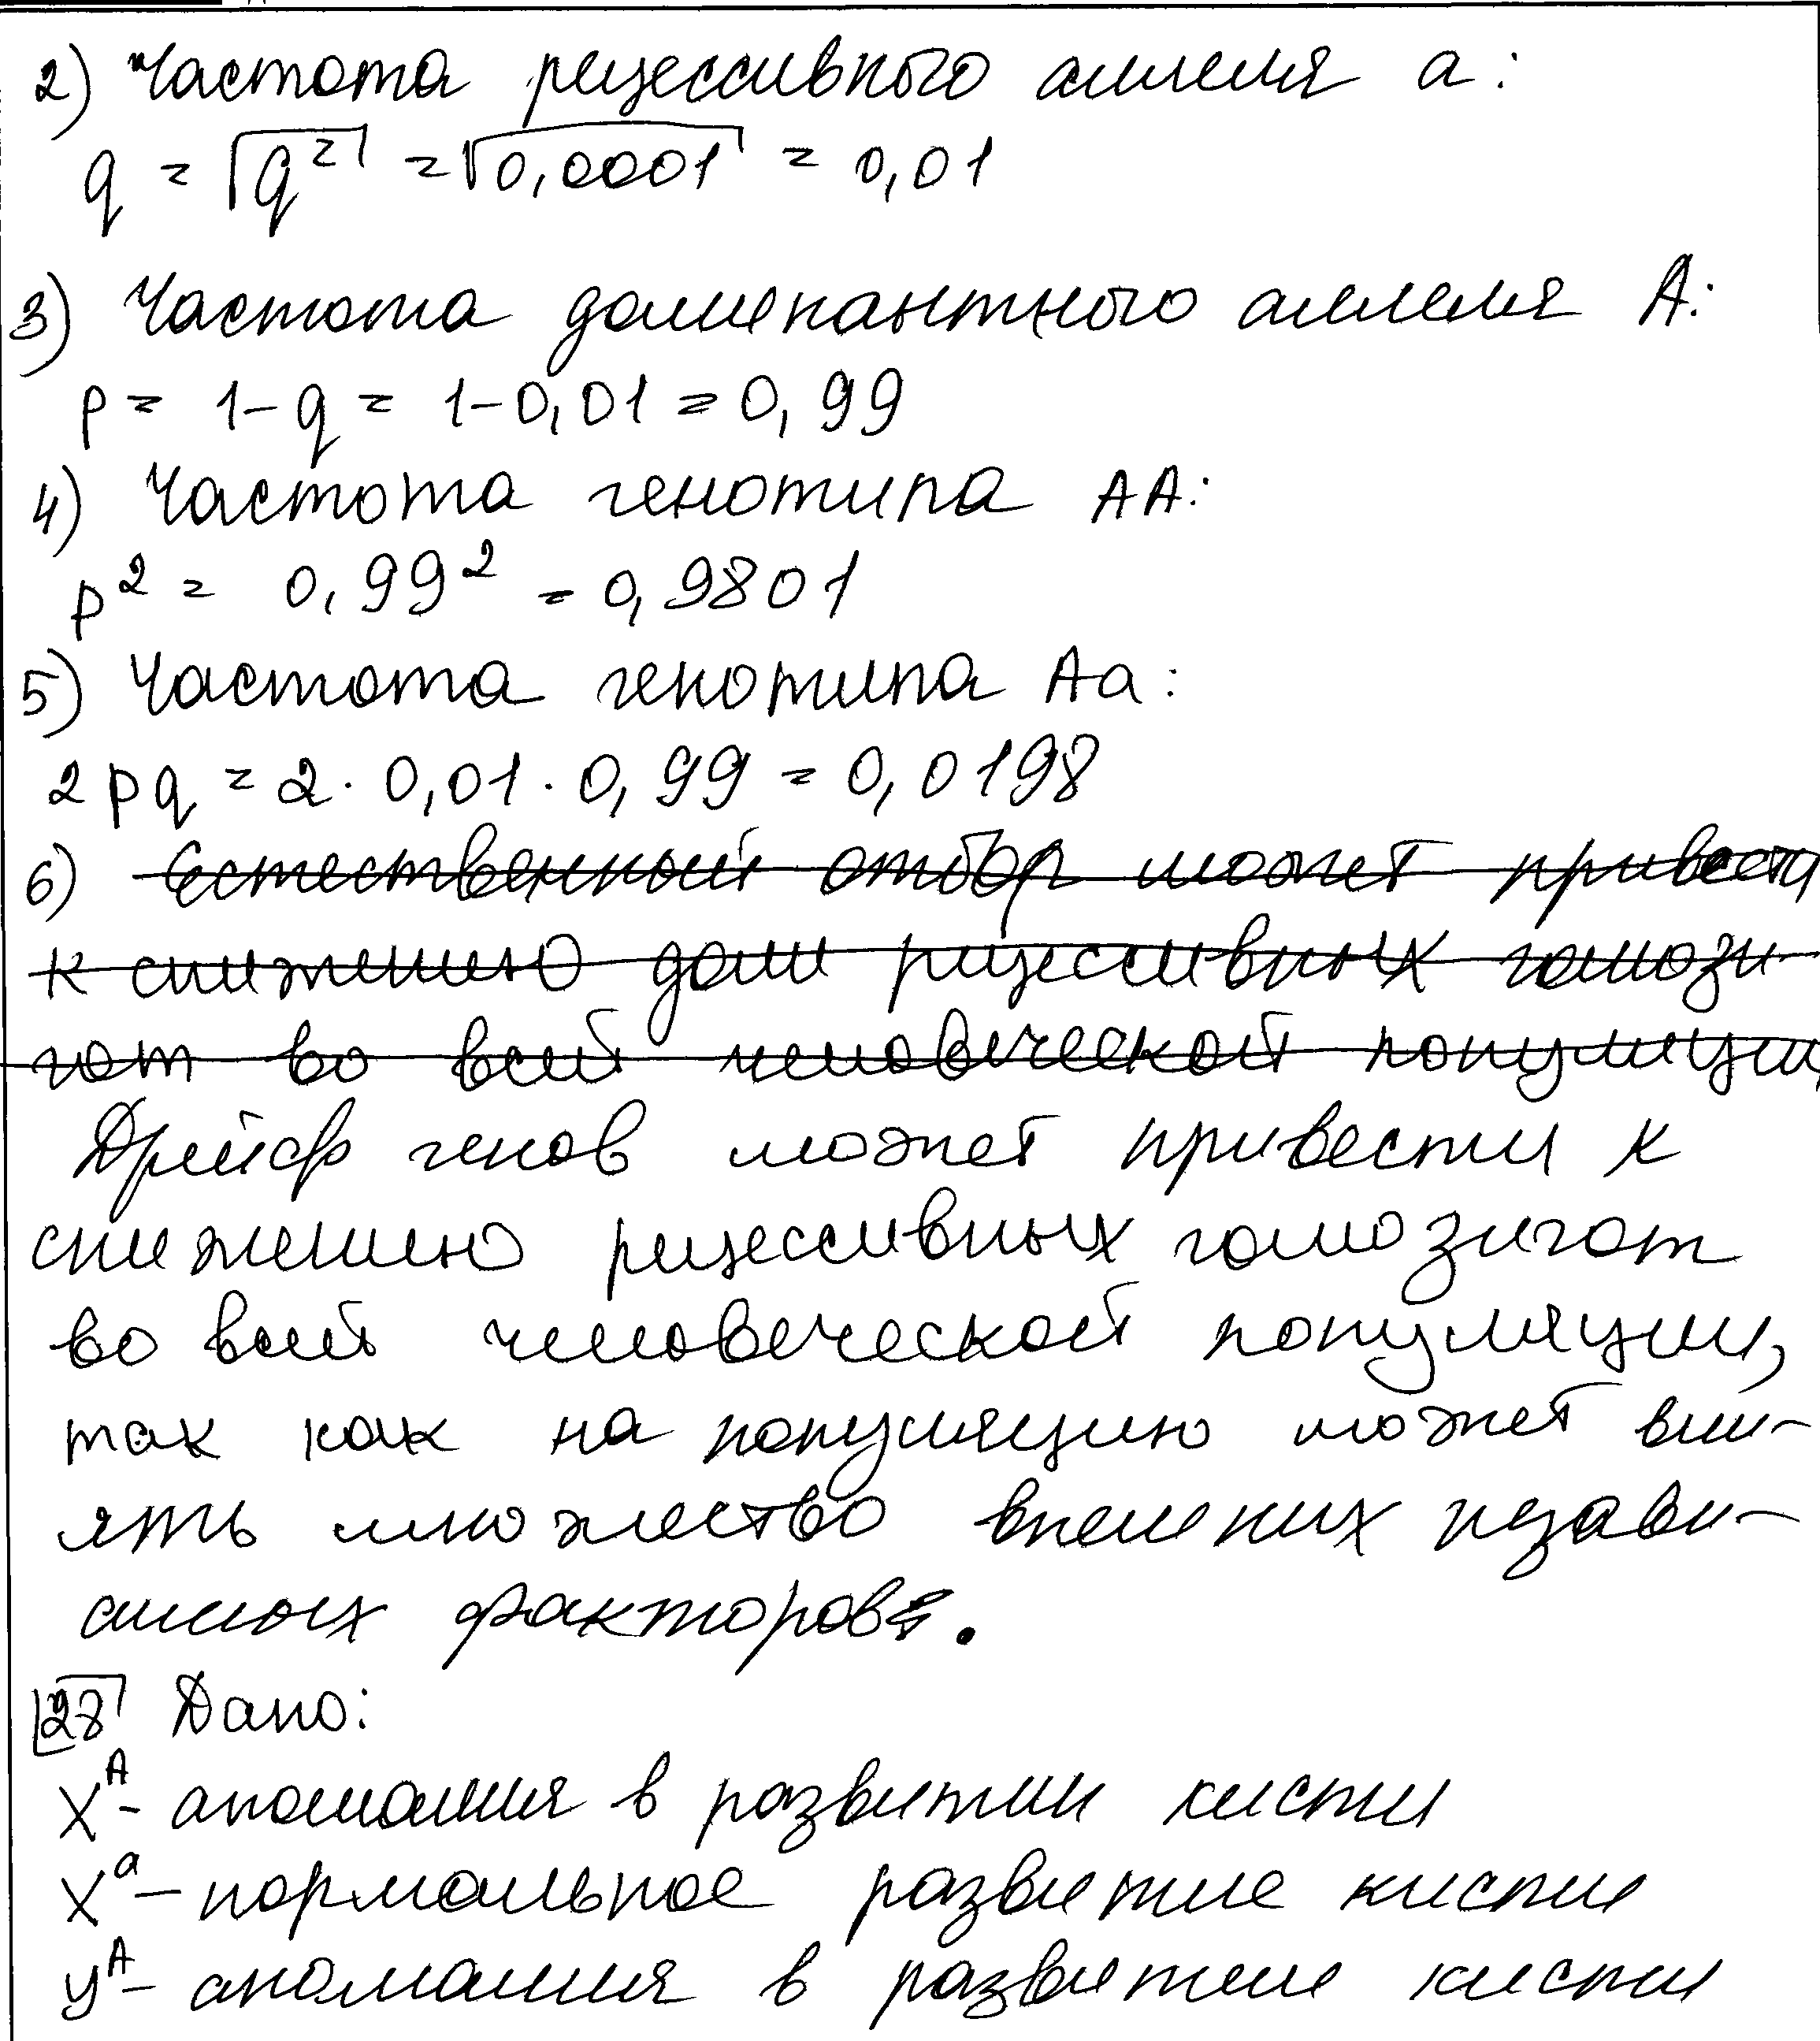 2) Частота рецессивного аллеля a:
q = √q² = √0,0001 = 0,01
3) Частота доминантного аллеля A:
p = 1-q = 1-0,01 = 0,99
4) Частота генотипа AA:
p² = 0,99² = 0,9801
5) Частота генотипа Aa:
2pq = 2·0,01·0,99 = 0,0198
6) Естественный отбор может привести
к снижению доли рецессивных гомози-
гот во всей человеческой популяции,
Дрейф генов может привести к
снижению рецессивных гомозигот
во всей человеческой популяции,
так как на популяцию может вли-
ять множество внешних незави-
симых факторов.
28 Дано:
X^A - аномалия в развитии кисти
X^a - нормальное развитие кисти
Y^A - аномалия в развитие кисти